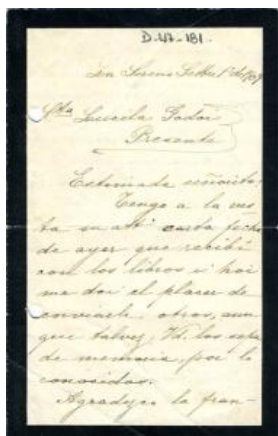 D-47-181.
La Serena
Sta Lucila Godoi
Presente
Estimada señorita:
Tengo a la vis-
ta su att. carta fecha
de ayer que recibí
con los libros i hoi
me doi el placer de
enviarle otros, aun
que talvez, Vd. los sepa
de memoria, por lo
conocidos.
Agradezco la fran-